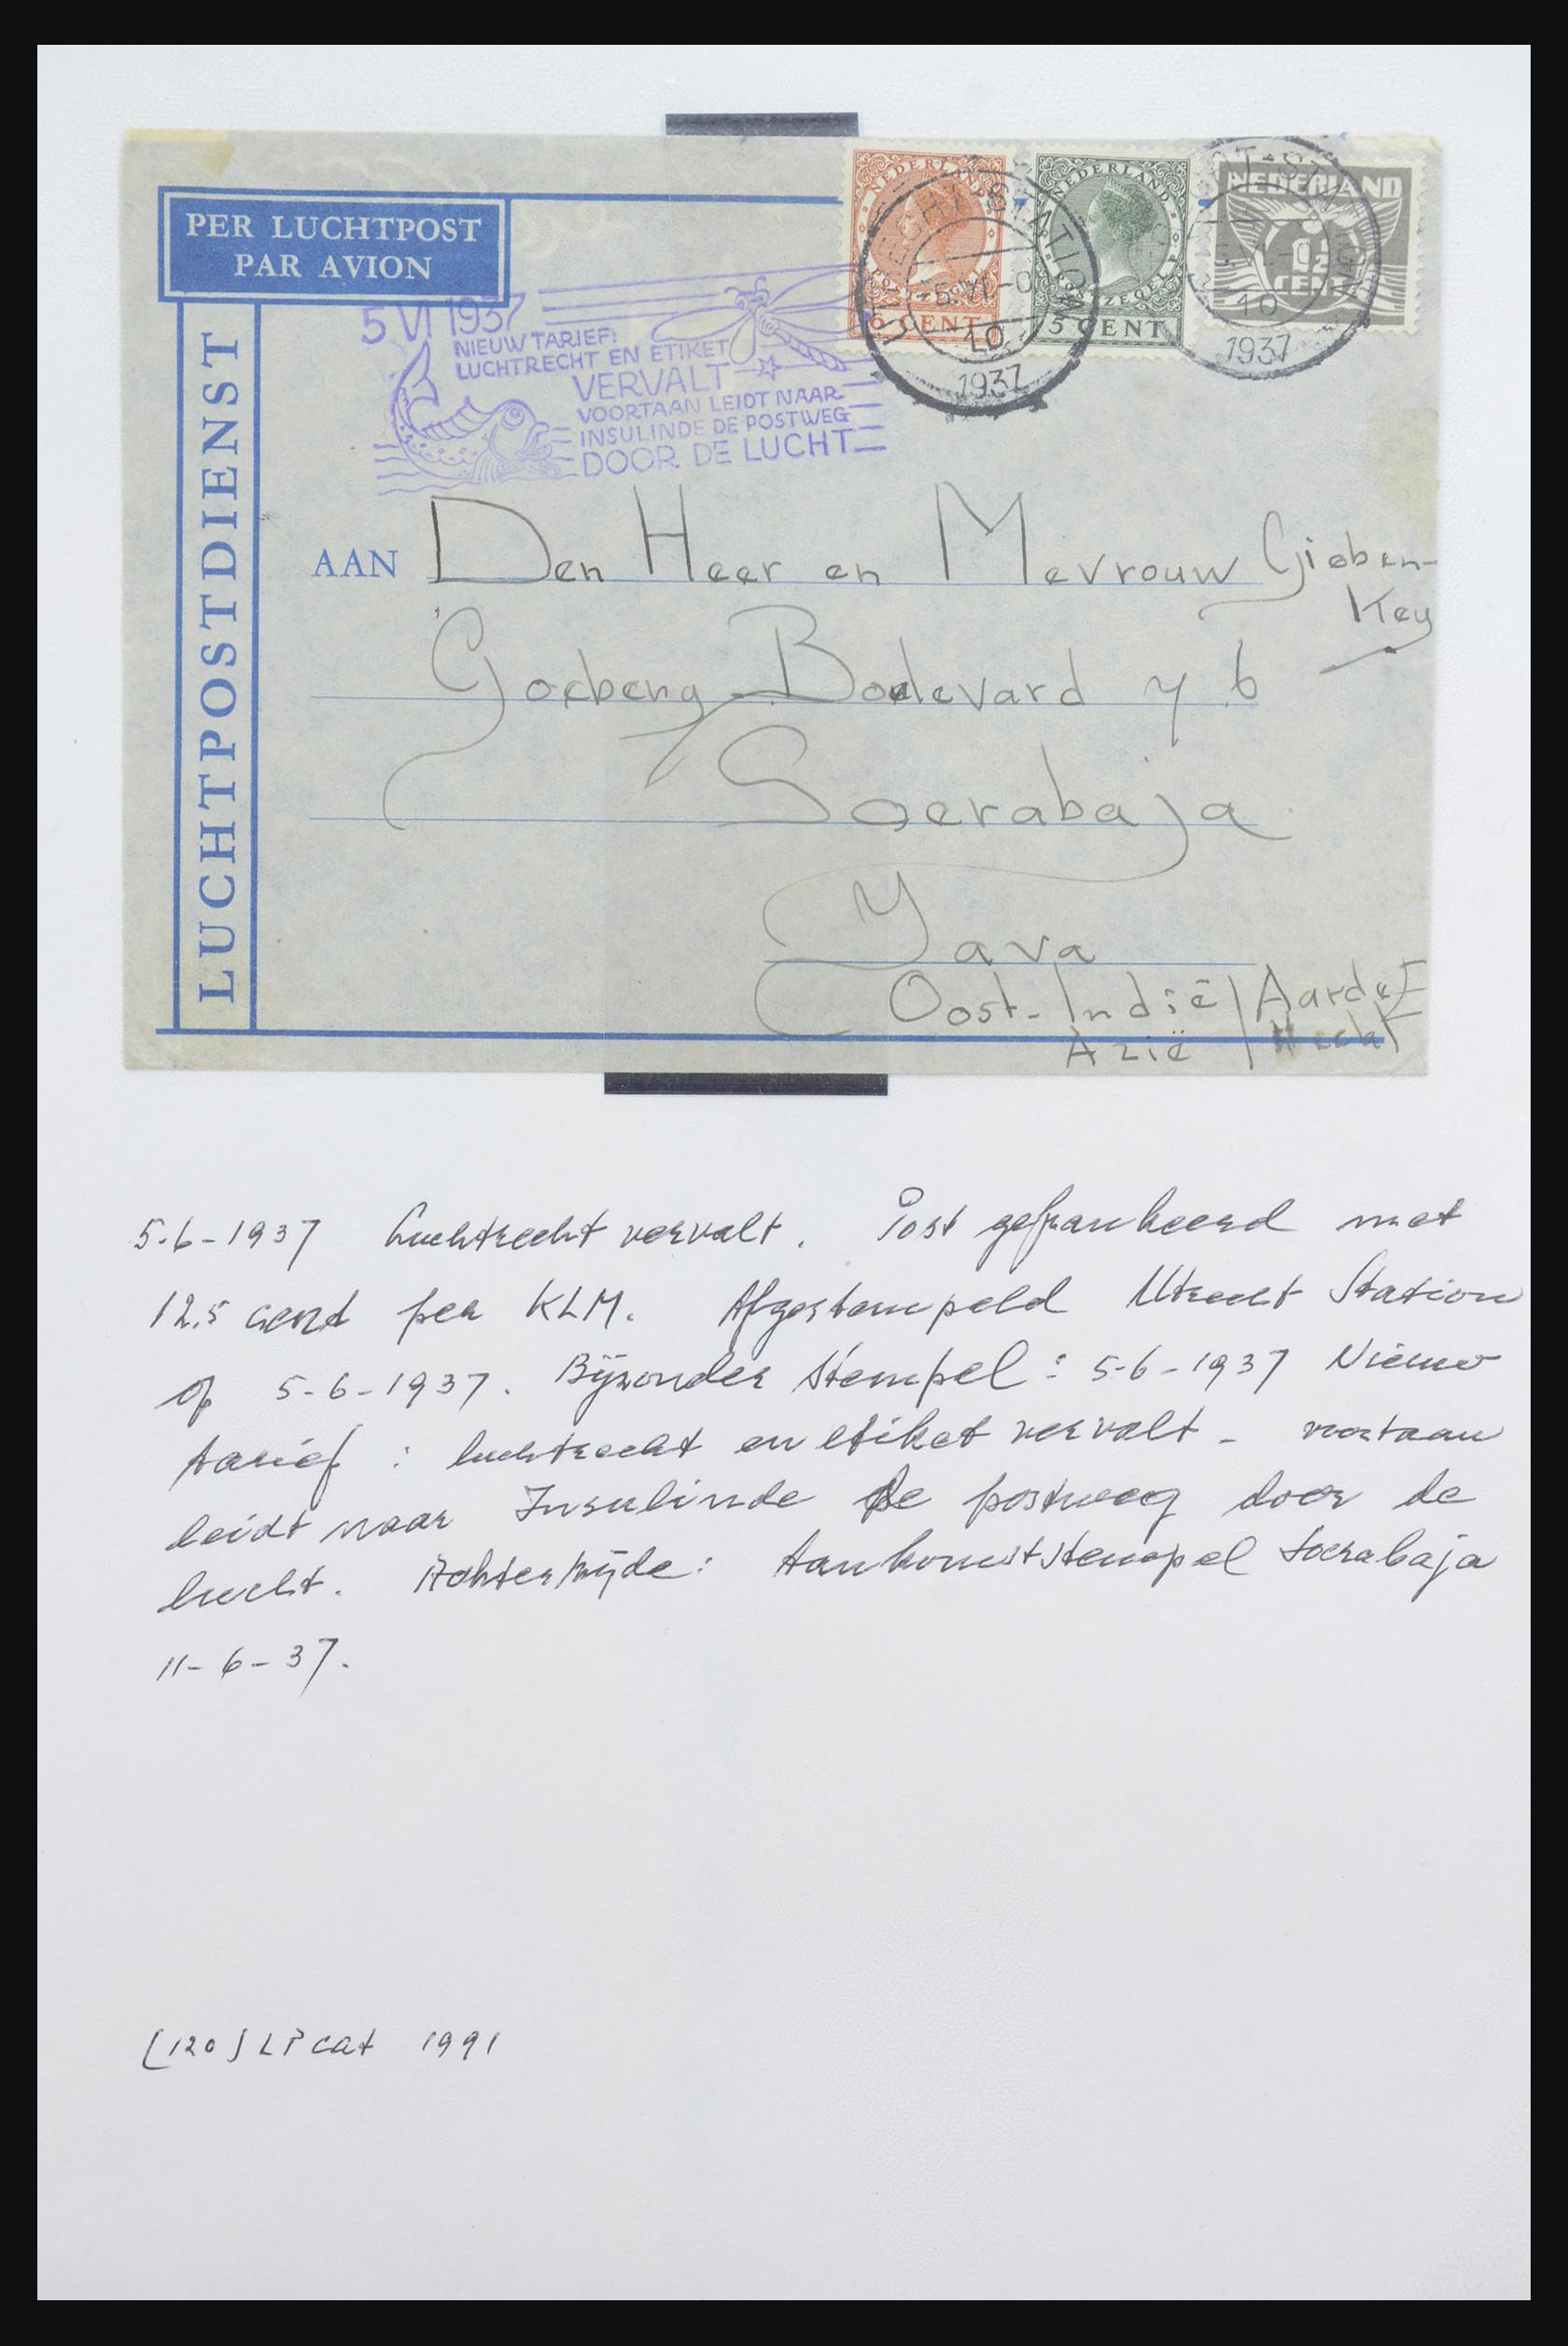 PER LUCHTPOST
PAR AVION
LUCHTPOSTDIENST
5 VI 1937
NIEUW TARIEF:
LUCHTRECHT EN ETIKET
VERVALT
VOORTAAN LEIDT NAAR
INSULINDE DE POSTWEG
DOOR DE LUCHT
NEDERLAND
POSTZEGEL
6 CENT
NEDERLAND
POSTZEGEL
5 CENT
NEDERLAND
1½
CENT
UTRECHT-STATION
5.VI.-0
10
1937
10
1937
AAN Den Heer en Mevrouw Gieben-
Key
Goebeng Boelevard 76
Soerabaja
Java
Oost-Indië Aarde
Azië
5-6-1937 Luchtrecht vervalt. Post gefrankeerd met
12.5 cent per KLM. Afgestempeld Utrecht Station
op 5-6-1937. Bijzonder stempel: 5-6-1937 Nieuw
tarief: luchtrecht en etiket vervalt - voortaan
leidt naar Insulinde de postweg door de
lucht. Achterzijde: Aankomststempel Soerabaja
11-6-37.
[120] LP cat 1991